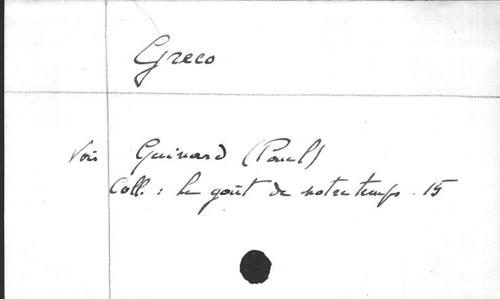 Greco
Voir Guinard (Paul)
Coll. : Le goût de notre temps. 15